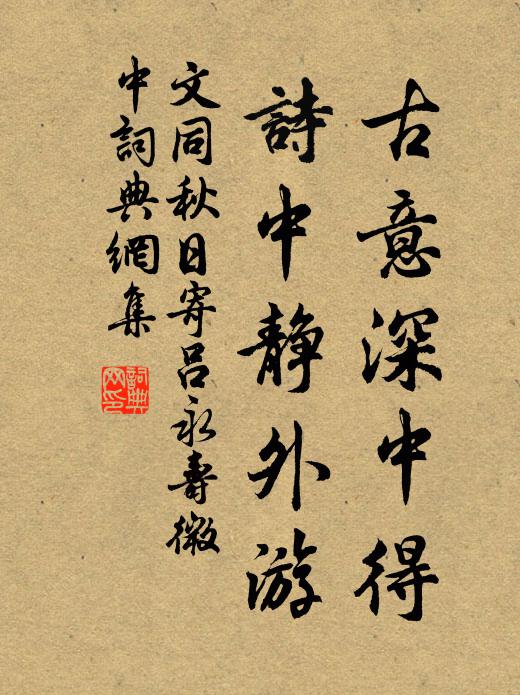 古意深中得
詩中静外游
文同秋日寄吕永壽微
中詞典網集
詞典
网印